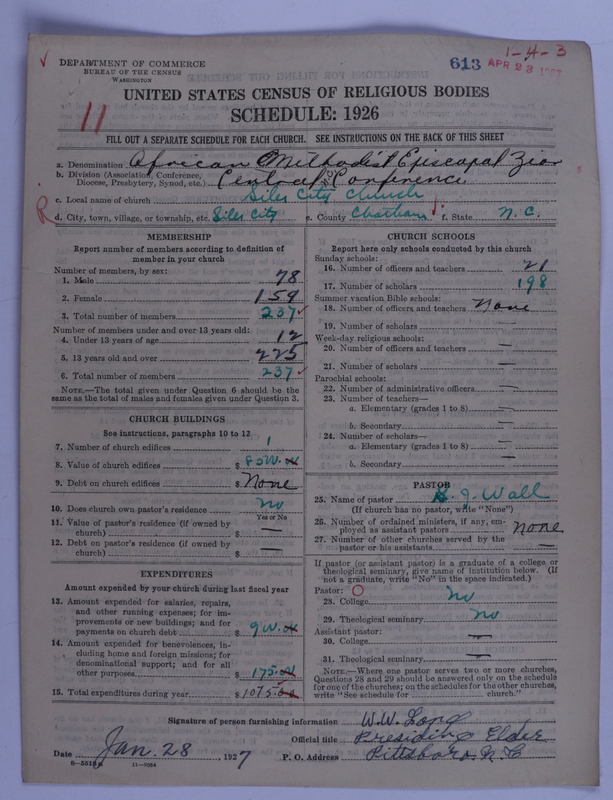 1-4-3
613 APR 23
DEPARTMENT OF COMMERCE
BUREAU OF THE CENSUS
WASHINGTON
UNITED STATES CENSUS OF RELIGIOUS BODIES
11
SCHEDULE: 1926
FILL OUT A SEPARATE SCHEDULE FOR EACH CHURCH. SEE INSTRUCTIONS ON THE BACK OF THIS SHEET
a. Denomination African Methodist Episcopal Zion
b. Division (Association, Conference, Diocese, Presbytery, Synod, etc.) Central Conference
c. Local name of church Siler City Church
R d. City, town, village, or township, etc. Siler City e. County Chatham f. State N. C.
MEMBERSHIP
Report number of members according to definition of
member in your church
Number of members, by sex:
1. Male 78
2. Female 159
3. Total number of members 237
Number of members under and over 13 years old:
4. Under 13 years of age 12
5. 13 years old and over 225
6. Total number of members 237
NOTE.—The total given under Question 6 should be
same as the total of males and females given under Question 3.
CHURCH BUILDINGS
See instructions, paragraphs 10 to 12
7. Number of church edifices 1
8. Value of church edifices $
9. Debt on church edifices $ None
10. Does church own pastor's residence no
Yes or No
11. Value of pastor's residence (if owned by
church) $ —
12. Debt on pastor's residence (if owned by
church) $ —
EXPENDITURES
Amount expended by your church during last fiscal year
13. Amount expended for salaries, repairs,
and other running expenses; for im-
provements or new buildings; and for
payments on church debt $
14. Amount expended for benevolences, in-
cluding home and foreign missions; for
denominational support; and for all
other purposes $ 175.
15. Total expenditures during year $ 1075.
CHURCH SCHOOLS
Report here only schools conducted by this church
Sunday schools:
16. Number of officers and teachers 21
17. Number of scholars 198
Summer vacation Bible schools:
18. Number of officers and teachers None
19. Number of scholars —
Week-day religious schools:
20. Number of officers and teachers —
21. Number of scholars —
Parochial schools:
22. Number of administrative officers —
23. Number of teachers—
a. Elementary (grades 1 to 8) —
b. Secondary —
24. Number of scholars—
a. Elementary (grades 1 to 8) —
b. Secondary —
PASTOR
25. Name of pastor J. Wall
(If church has no pastor, write "None")
26. Number of ordained ministers, if any, em-
ployed as assistant pastors None
27. Number of other churches served by the
pastor or his assistants —
If pastor (or assistant pastor) is a graduate of a college or
theological seminary, give name of institution below. (If
not a graduate, write "No" in the space indicated.)
Pastor:
28. College No
29. Theological seminary No
Assistant pastor:
30. College —
31. Theological seminary —
NOTE.—Where one pastor serves two or more churches,
Questions 28 and 29 should be answered only on the schedule
for one of the churches; on the schedules for the other churches,
write "See schedule for ........ church."
Signature of person furnishing information W. W. Long
Official title Presiding Elder
Date Jan. 28, 1927 P. O. Address Pittsboro, N. C
11—9084